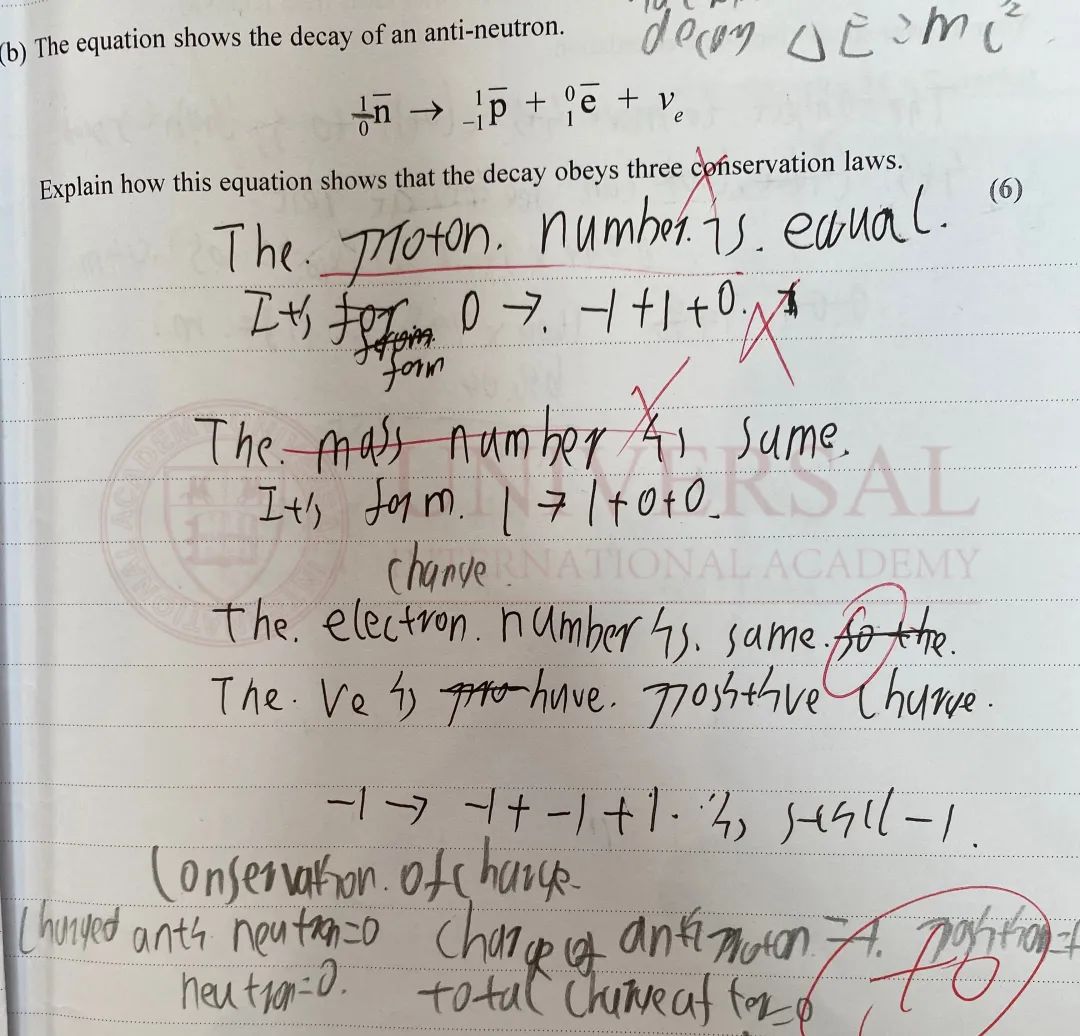 decay ΔE = mc²
(b) The equation shows the decay of an anti-neutron.
¹₀n̅ → ¹₋₁p̅ + ⁰₁e̅ + νₑ
Explain how this equation shows that the decay obeys three conservation laws.
(6)
The. proton. number. is. equal.
It's for 0 →. -1 +1 +0.
form
The. mass number is same.
It's form. 1 → 1+0+0.
UNIVERSAL
INTERNATIONAL ACADEMY
change.
the. electron. number is. same. so the.
The. Ve is pro have. positive charge.
-1 → -1 + -1 +1. is still -1.
Conservation. of charge.
Charged anti neutron=0 Charge of anti proton = -1. position=1
neutron=0. total charge af ter=0
+0